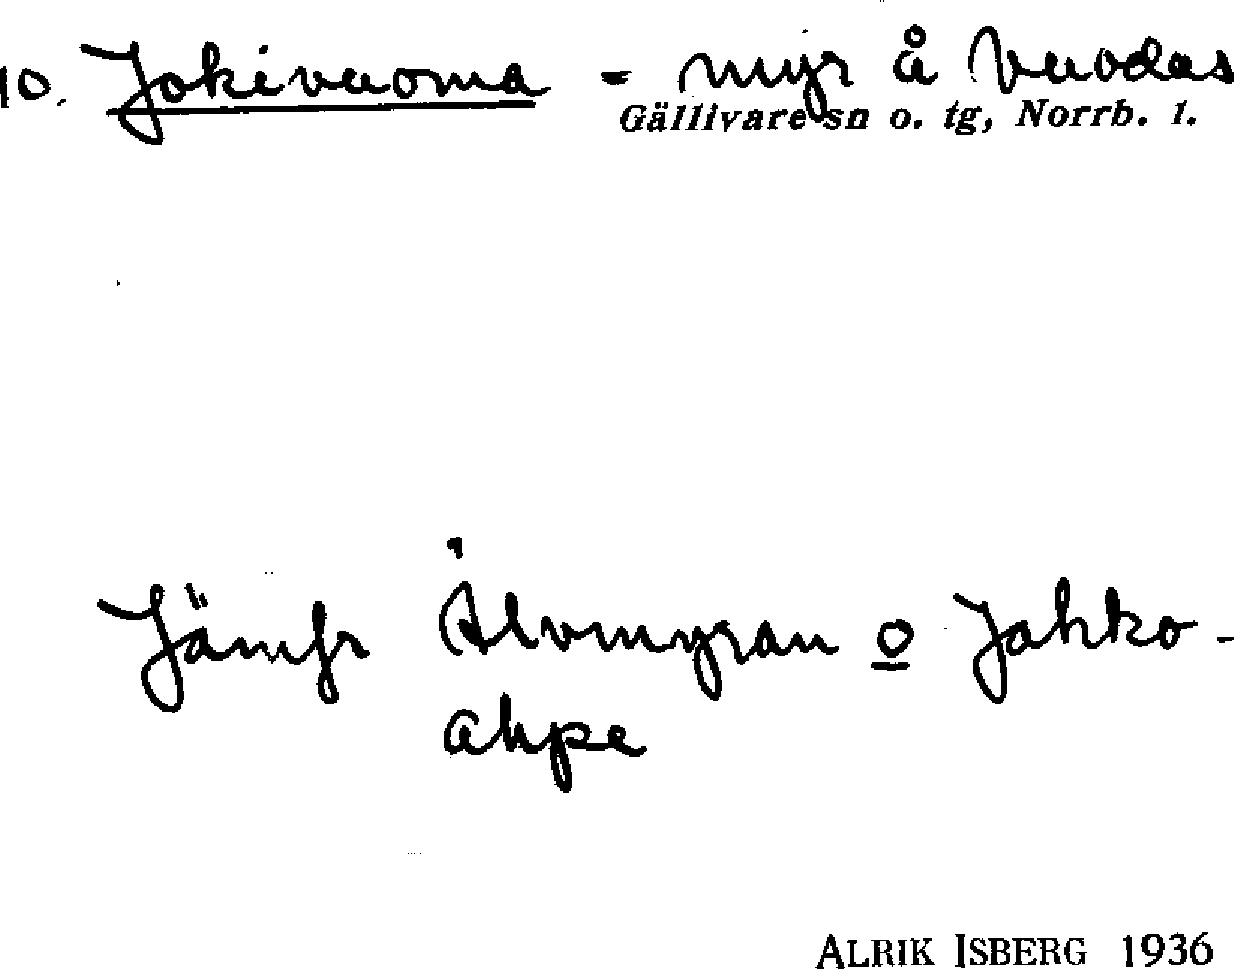 10. Jokivuoma - myr å Vuodas
Gällivare sn o. tg, Norrb. l.
Jämfr Älvmyran o Jahko-
ahpe
ALRIK ISBERG 1936